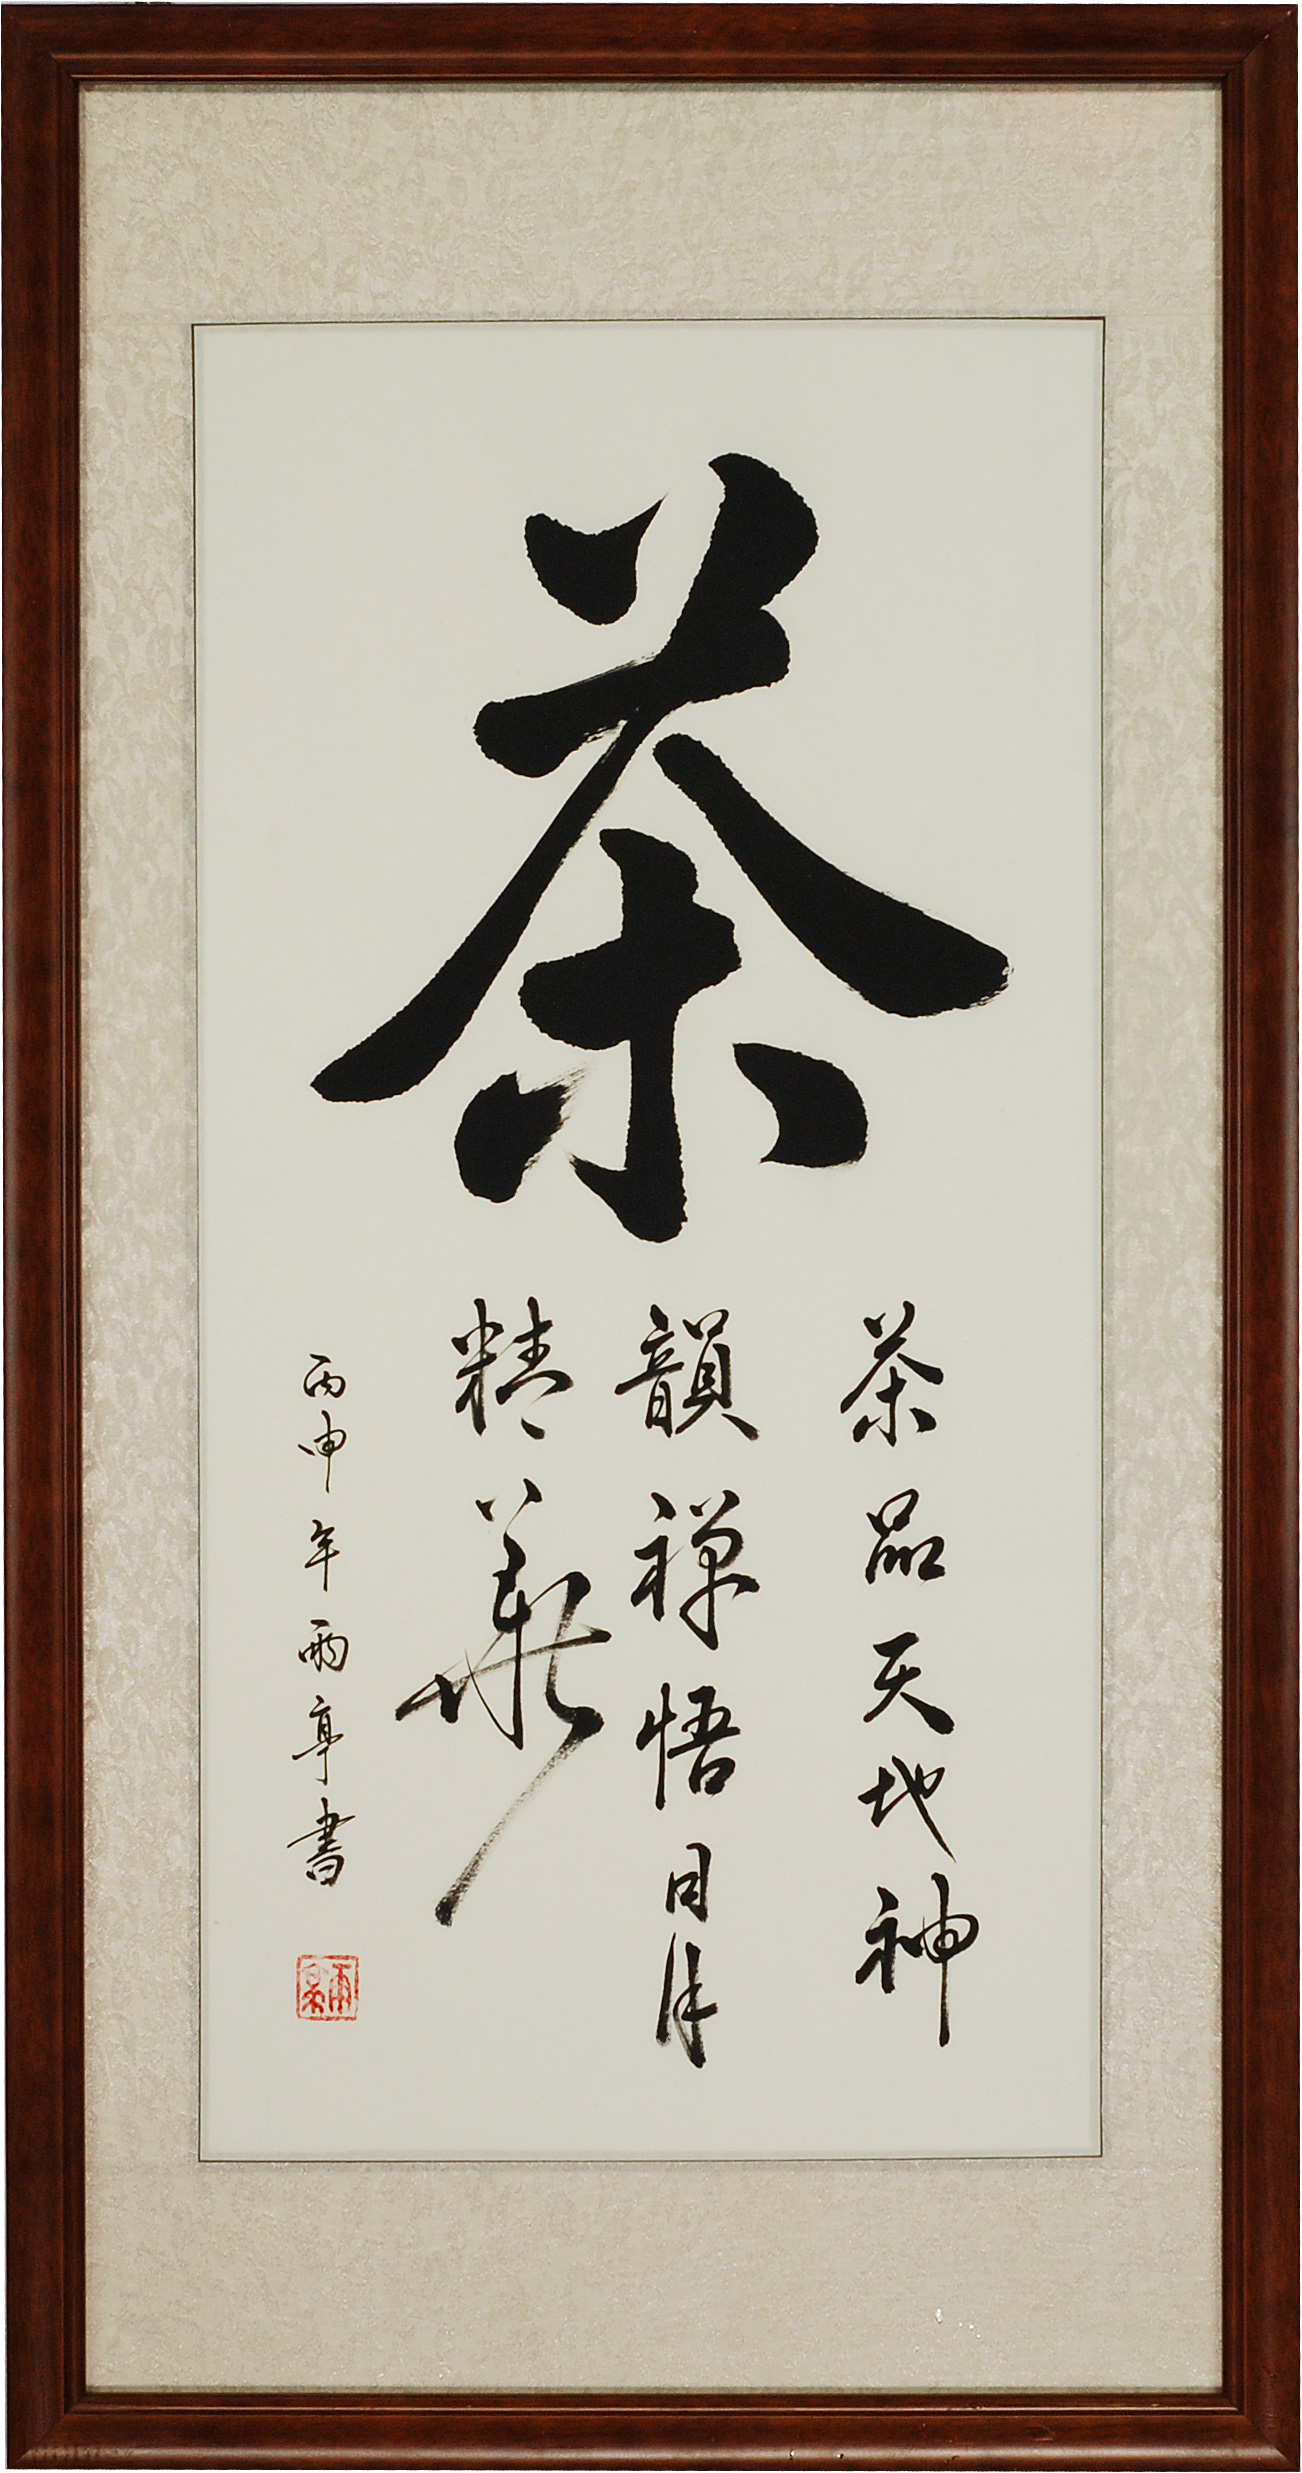 茶
茶品天地神
韻禅悟日月
精華
丙申年雨亭書